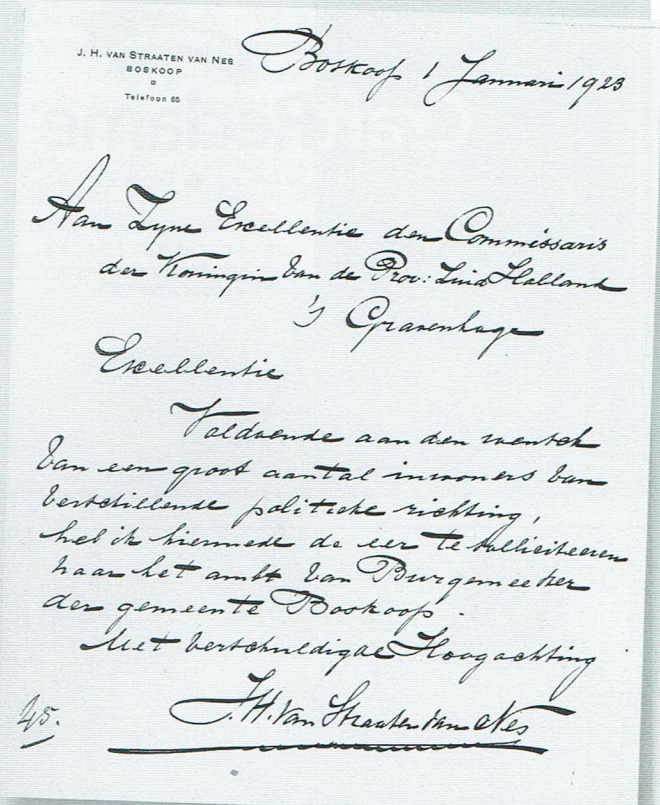 J. H. VAN STRAATEN VAN NES
BOSKOOP
Telefoon 65
Boskoop 1 Januari 1923
Aan Zyne Excellentie den Commissaris
der Koningin van de Prov: Zuid Holland
's Gravenhage
Excellentie
Voldoende aan den wensch
van een groot aantal inwoners van
verschillende politieke richting,
heb ik hiermede de eer te solliciteeren
naar het ambt van Burgemeester
der gemeente Boskoop.
Met verschuldigde Hoogachting
J. H. van Straaten van Nes
45.